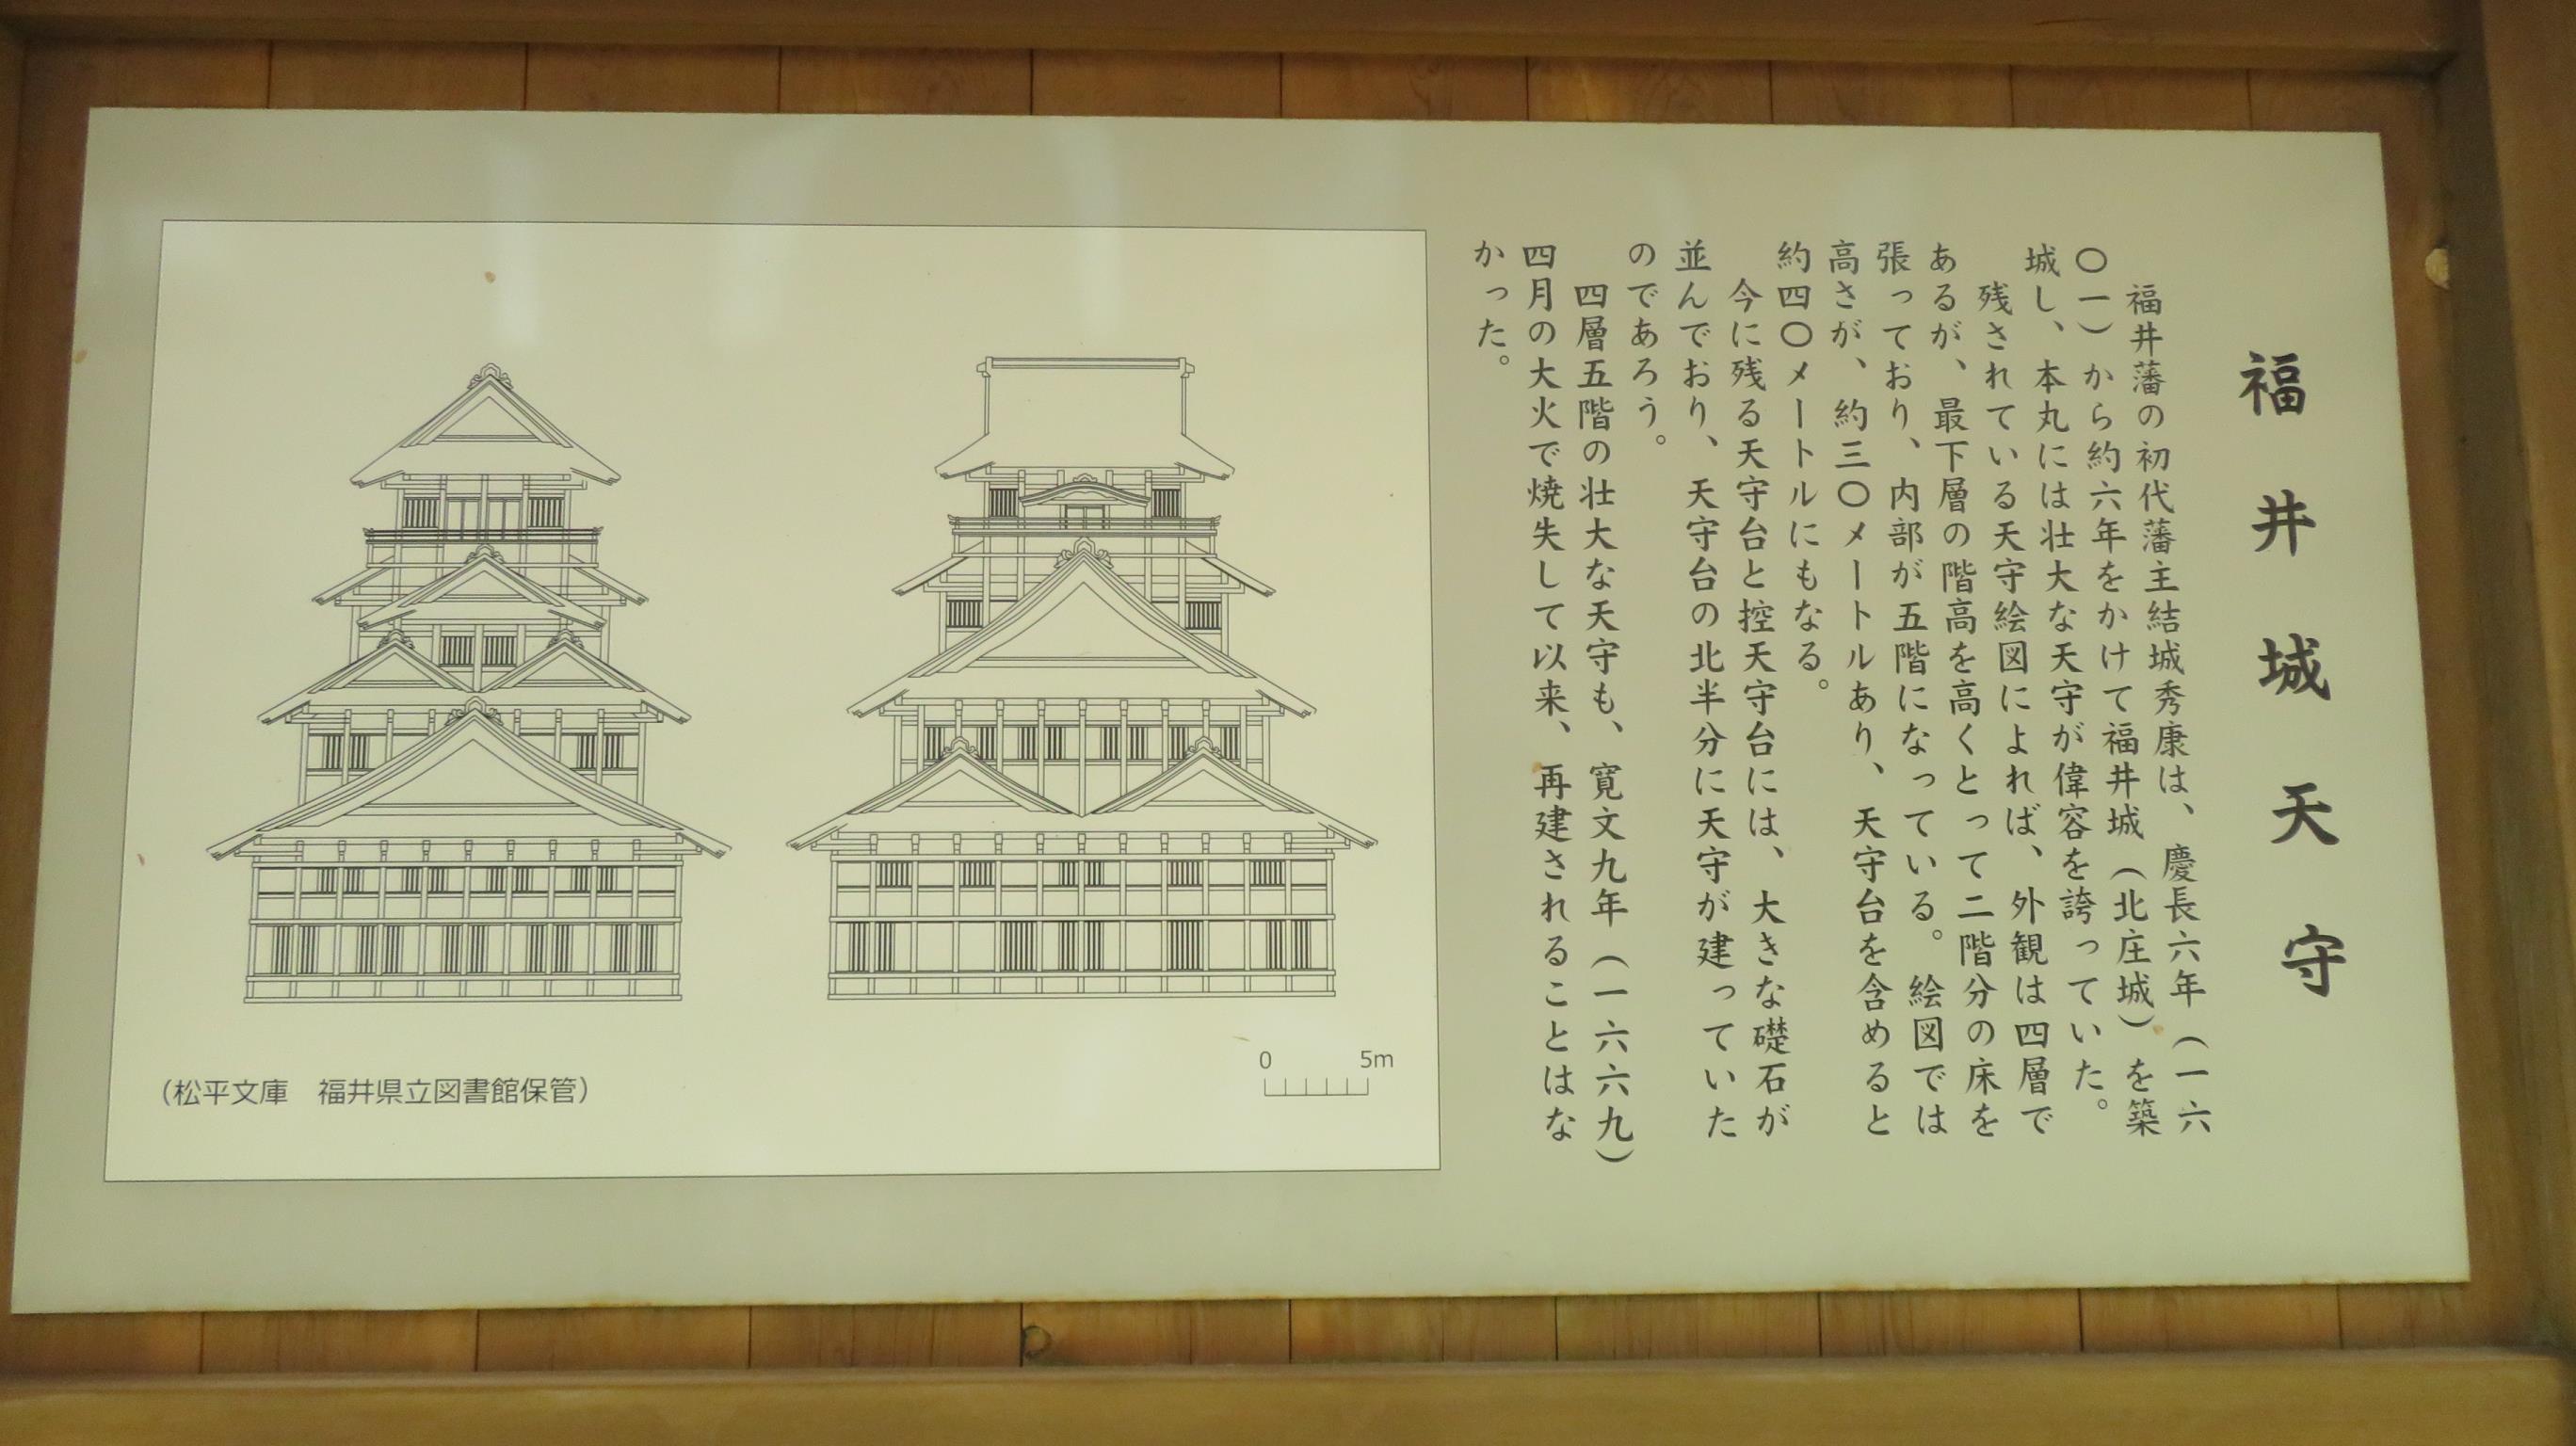 福井城天守
福井藩の初代藩主結城秀康は、慶長六年（一六
〇一）から約六年をかけて福井城（北庄城）を築
城し、本丸には壮大な天守が偉容を誇っていた。
残されている天守絵図によれば、外観は四層で
あるが、最下層の階高を高くとって二階分の床を
張っており、内部が五階になっている。絵図では
高さが、約三〇メートルあり、天守台を含めると
約四〇メートルにもなる。
今に残る天守台と控天守台には、大きな礎石が
並んでおり、天守台の北半分に天守が建っていた
のであろう。
四層五階の壮大な天守も、寛文九年（一六六九）
四月の大火で焼失して以来、再建されることはな
かった。
0 5m
（松平文庫　福井県立図書館保管）